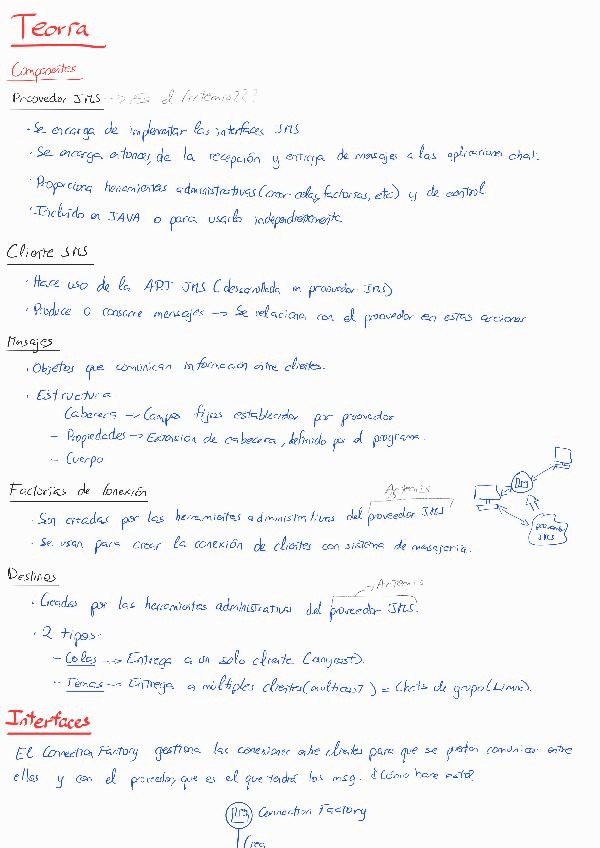 Teoría
Componentes
Proovedor JMS --> Es el Artemis???
· Se encarga de implementar las interfaces JMS
· Se encarga entonces, de la recepción y entrega de mensajes a las aplicaciones chat.
· Proporciona herramientas administrativas (crear colas, factorías, etc) y de control
· Incluido en JAVA o para usarlo independientemente
Cliente JMS
· Hace uso de la API JMS (desarrollada en proovedor JMS)
· Produce o consume mensajes -> Se relaciona con el proovedor en estas acciones
Mensajes
· Objetos que comunican información entre clientes.
· Estructura
Cabecera -> Campos fijos establecidos por proovedor
- Propiedades -> Extensión de cabecera, definido por el programa.
- Cuerpo
Factorías de Conexión
Artemis
· Son creadas por las herramientas administrativas del proveedor JMS
· Se usan para crear la conexión de clientes con sistema de mensajería.
proveedor JMS
Destinos
Artemis
· Creados por las herramientas administrativas del proveedor JMS.
· 2 tipos:
- Colas --> Entrega a un solo cliente (anycast).
- Temas --> Entrega a múltiples clientes (multicast) = Chats de grupo
Interfaces
El Connection Factory gestiona las conexiones entre clientes para que se puedan comunicar entre
ellos y con el proveedor, que es el que tendrá los msg. ¿Cómo hace esto?
Connection Factory
Crea